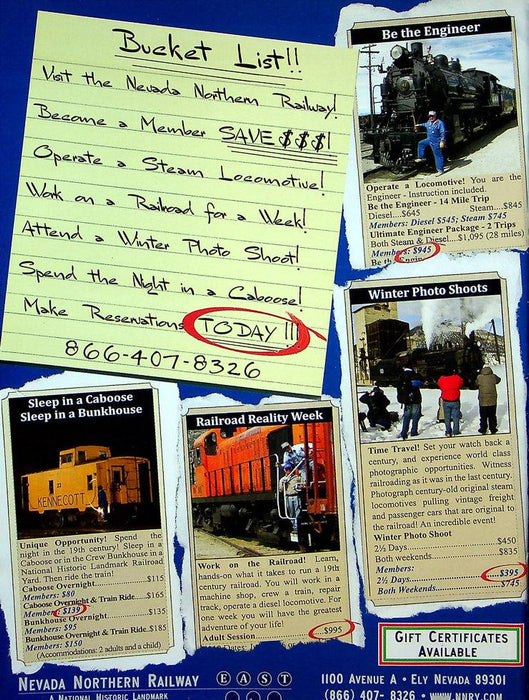 Bucket List!!
Visit the Nevada Northern Railway!
Become a Member SAVE $$$!
Operate a Steam Locomotive!
Work on a Railroad for a Week!
Attend a Winter Photo Shoot!
Spend the Night in a Caboose!
Make Reservations TODAY !!!
866-407-8326
Be the Engineer
Operate a Locomotive! You are the
Engineer - Instruction included.
Be the Engineer - 14 Mile Trip
Diesel....$645 Steam....$845
Members: Diesel $545; Steam $745
Ultimate Engineer Package - 2 Trips
Both Steam & Diesel....$1,095 (28 miles)
Members: $945
Winter Photo Shoots
Time Travel! Set your watch back a
century, and experience world class
photographic opportunities. Witness
railroading as it was in the last century.
Photograph century-old original steam
locomotives pulling vintage freight
and passenger cars that are original to
the railroad! An incredible event!
Winter Photo Shoot
2½ Days....$450
Both weekends....$835
Members:
2½ Days....$395
Both Weekends....$745
Sleep in a Caboose
Sleep in a Bunkhouse
KENNECOTT
Unique Opportunity! Spend the
night in the 19th century! Sleep in a
Caboose or in the Crew Bunkhouse in a
National Historic Landmark Railroad
Yard. Then ride the train!
Caboose Overnight....$115
Members: $80
Caboose Overnight & Train Ride..$165
Members: $139
Bunkhouse Overnight....$135
Members: $95
Bunkhouse Overnight & Train Ride..$185
Members: $150
(Accommodations: 2 adults and a child)
Railroad Reality Week
Work on the Railroad! Learn,
hands-on what it takes to run a 19th
century railroad. You will work in a
machine shop, crew a train, repair
track, operate a diesel locomotive. For
one week you will have the greatest
adventure of your life!
Adult Session....$995
Gift Certificates
Available
Nevada Northern Railway
A National Historic Landmark
EAST
1100 Avenue A • Ely Nevada 89301
(866) 407-8326 • www.nnry.com